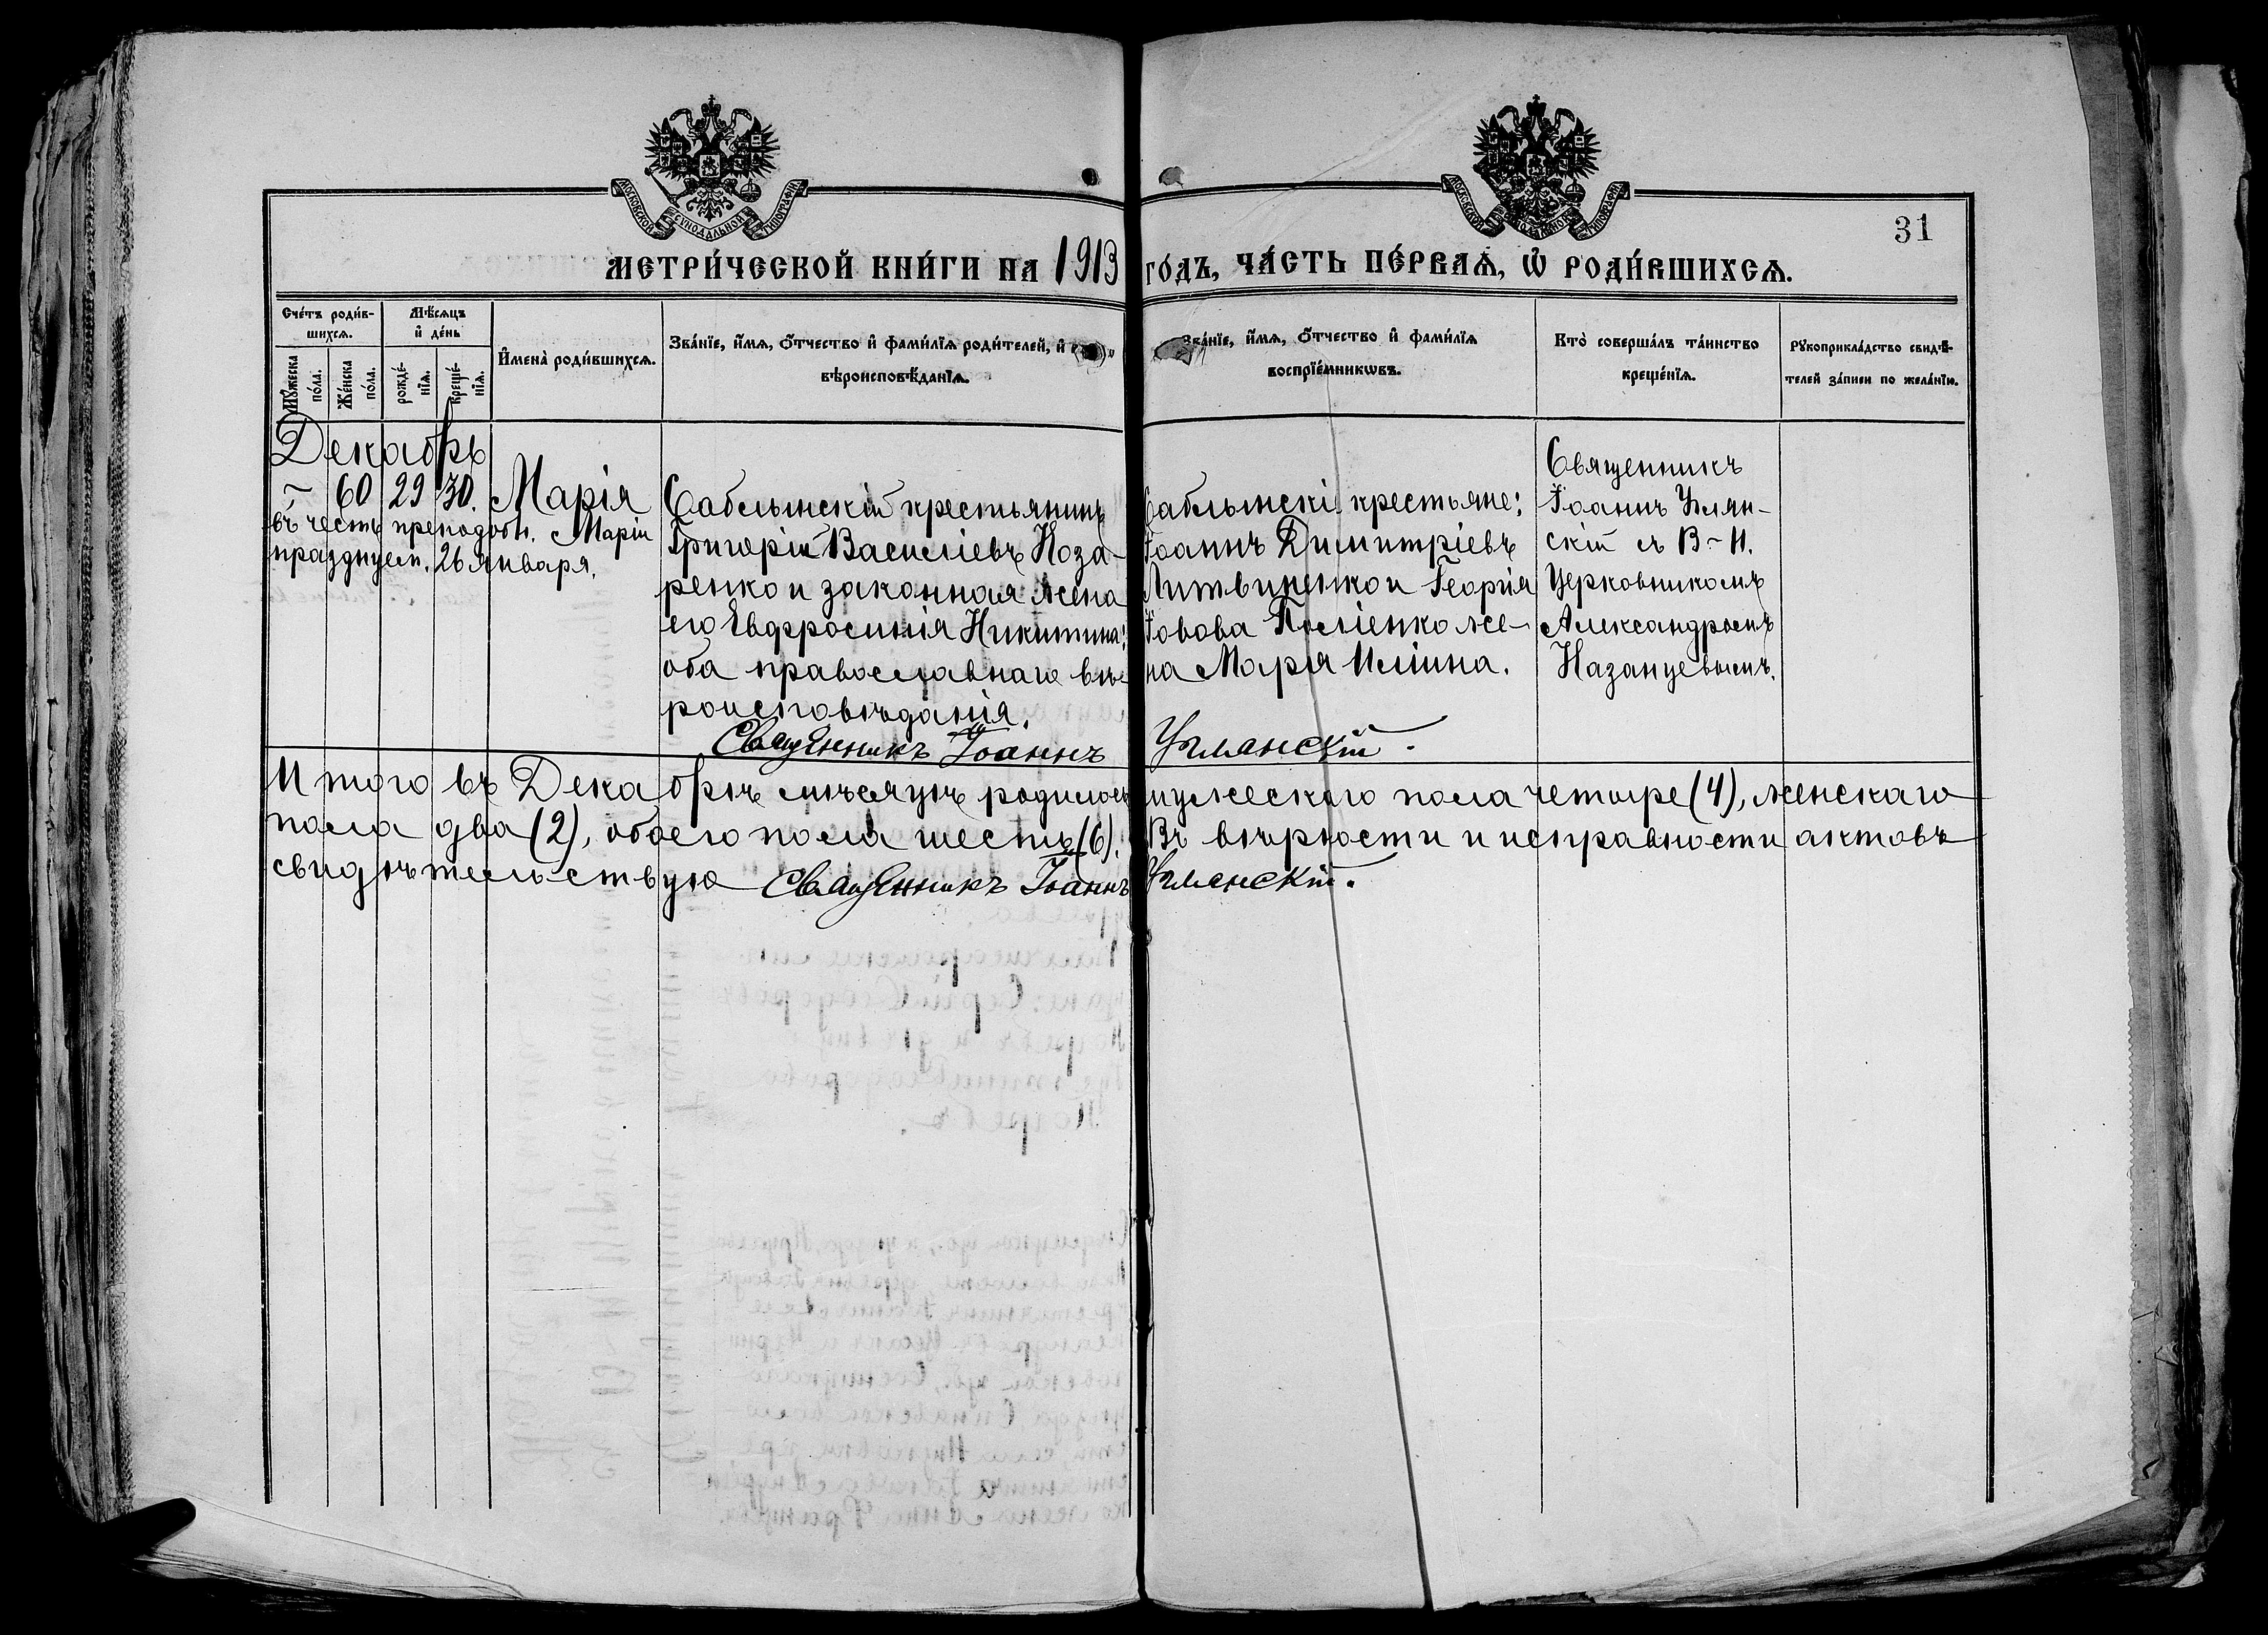 МОСКОВСКОЙ СУНОДАЛЬНОЙ ТИПОГРАФІИ
МОСКОВСКОЙ СУНОДАЛЬНОЙ ТИПОГРАФІИ
31
МЕТРИ́ЧЕСКОЙ КНИ́ГИ НА 1913 ГО́ДЪ, ЧА́СТЬ ПЕ́РВАѦ, Ѽ РОДИ́ВШИХСѦ.
Сче́тъ роди́в-
шихсѧ.
Мѣ́сѧцъ
и҆ де́нь
Мꙋ́жеска
по́ла.
Же́нска
по́ла.
рожде́-
нїѧ.
креще́-
нїѧ.
И҆мена̀ роди́вшихсѧ.
Зва́нїе, и҆́мѧ, ѻ҆́тчество и҆ фами́лїѧ роди́телей, и҆
вѣроисповѣ́данїѧ.
Зва́нїе, и҆́мѧ, ѻ҆́тчество и҆ фами́лїѧ
воспрїе́мникѡвъ.
Кто̀ соверша́лъ та́инство
креще́нїѧ.
Рꙋкоприкла́дство свидѣ́-
телей за́писи по жела́нїю.
Декабрь
~ 60 29 30. Марія
въ честь преподобн. Маріи
празднуем. 26 января.
Саблинскій крестьянинъ
Григорій Василіевъ Наза-
ренко и законная жена
его Евфросинія Никитина:
оба православнаго вѣ-
роисповѣданія.
Саблинскі крестьяне:
Іоаннъ Димитріевъ
Литвиненко и Георгія
Іовова жe-
на Марія Иліина.
Священникъ
Іоаннъ Уман-
скій съ
Церковникомъ
Александромъ
Казанцевымъ.
Священникъ Іоаннъ Уманскій.
Итого въ Декабрѣ мѣсяцѣ родилось мужескаго пола четыре (4), женскаго
пола два (2), обоего пола шесть (6). Въ вѣрности и исправности актовъ
свидѣтельствую Священникъ Іоаннъ Уманскій.